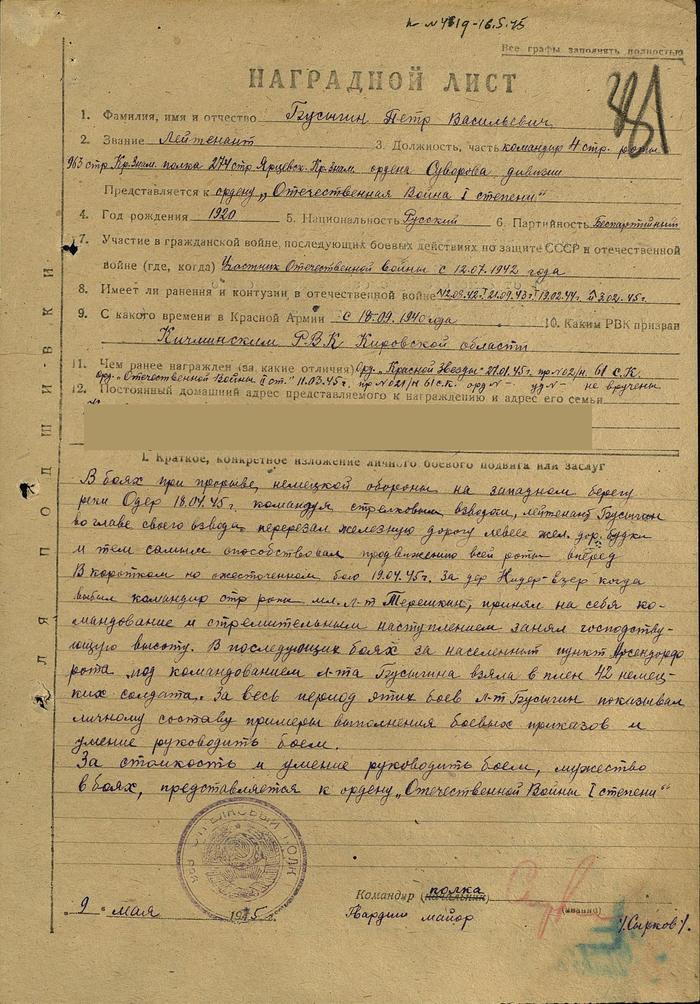 Все графы заполнять полностью
НАГРАДНОЙ ЛИСТ
1. Фамилия, имя и отчество Бусыгин Петр Васильевич
2. Звание Лейтенант 3. Должность, часть командир 4 стр. роты
963 стр. Кр.Знам. полка 274 стр. Ярцевск. Кр.Знам. ордена Суворова дивизии
Представляется к ордену „Отечественная Война I степени“
4. Год рождения 1920 5. Национальность Русский 6. Партийность Беспартийный
7. Участие в гражданской войне, последующих боевых действиях по защите СССР и отечественной
войне (где, когда) Участник Отечественной войны с 12.07.1942 года
8. Имеет ли ранения и контузии в отечественной войне
9. С какого времени в Красной Армии с 18.09.1940 года 10. Каким РВК призван
РВК Кировской области
11. Чем ранее награжден (за какие отличия) Орд. „Красной Звезды“ 27.01.45г. пр №02/н. 61 С.К.
орд. „Отечественной Войны II ст.“ 11.03.45г. пр №021/н 61 с.к. орд № -. уд № - не вручены
12. Постоянный домашний адрес представляемого к награждению и адрес его семьи
I. Краткое, конкретное изложение личного боевого подвига или заслуг
В боях при прорыве немецкой обороны на западном берегу
реки Одер 18.04.45г. командуя стрелковым взводом, лейтенант Бусыгин
во главе своего взвода перерезал железную дорогу левее жел. дор. будки
и тем самым способствовал продвижению всей роты вперед
В коротком но ожесточенном бою 19.04.45г. за дер когда
выбыл командир стр роты мл. л-т Терешкин, принял на себя ко-
мандование и стремительным наступлением занял господству-
ющую высоту. В последующих боях за населенный пункт
рота под командованием л-та Бусыгина взяла в плен 42 немец-
ких солдата. За весь период этих боев л-т Бусыгин показывал
личному составу примеры выполнения боевых приказов и
умение руководить боем.
За стойкость и умение руководить боем, мужество
в боях, представляется к ордену „Отечественной Войны I степени“
СТРЕЛКОВЫЙ ПОЛК
Командир (начальник) полка
9 мая 1945 г.
Гвардии майор (звание) /Сырков/.
ДЛЯ ПОДШИВКИ